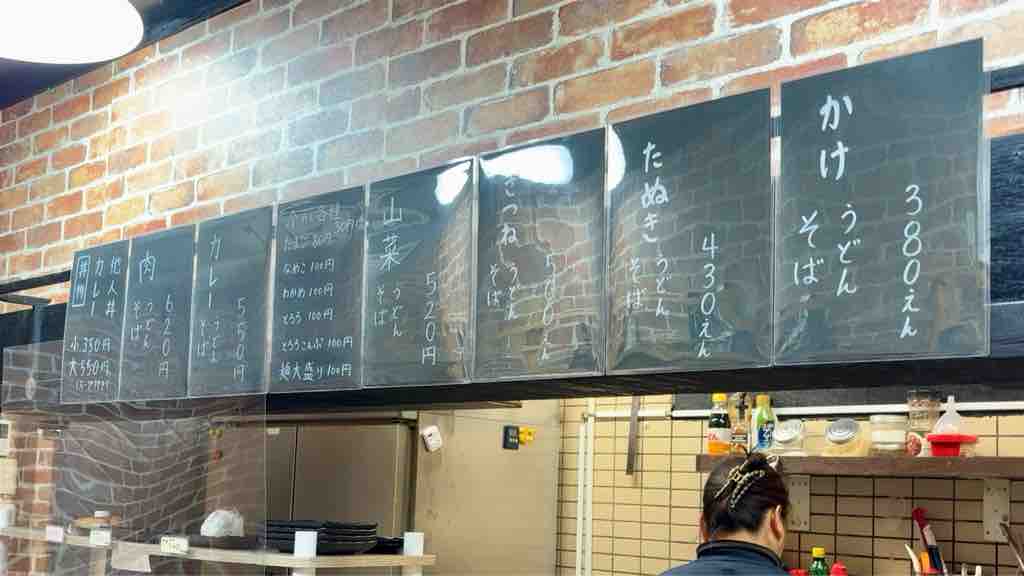 かけ
うどん
そば
380えん
たぬき
うどん
そば
430えん
きつね
うどん
そば
えん
山菜
うどん
そば
520円
なめこ 100円
わかめ 100円
とろろ 100円
とろろこんぶ 100円
麺大盛り 100円
カレー
うどん
そば
550円
肉
うどん
そば
620円
丼物
他人丼
カレー
小 350円
大 550円